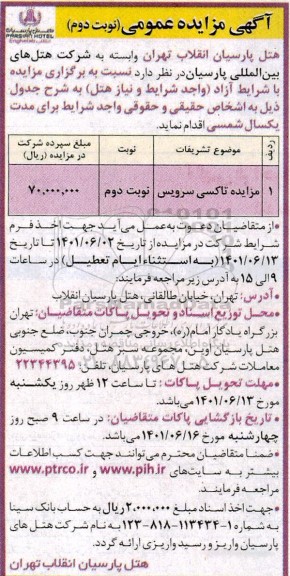 هتل پارسیان انقلاب
PARSIAN HOTEL
Enghelab
آگهی مزایده عمومی (نوبت دوم)
هتل پارسیان انقلاب تهران وابسته به شرکت هتل‌های
بین‌المللی پارسیان در نظر دارد نسبت به برگزاری مزایده
با شرایط آزاد (واجد شرایط و نیاز هتل) به شرح جدول
ذیل به اشخاص حقیقی و حقوقی واجد شرایط برای مدت
یکسال شمسی اقدام نماید.
ردیف موضوع تشریفات نوبت مبلغ سپرده شرکت در مزایده (ریال)
۱ مزایده تاکسی سرویس نوبت دوم ۷۰,۰۰۰,۰۰۰
•از متقاضیان دعوت به عمل می آید جهت اخذ فرم
شرایط شرکت در مزایده از تاریخ ۱۴۰۱/۰۶/۰۲ تا تاریخ
۱۴۰۱/۰۶/۱۳ (به استثناء ایام تعطیل) در ساعات
۹ الی ۱۵ به آدرس زیر مراجعه فرمایند:
•آدرس: تهران، خیابان طالقانی، هتل پارسیان انقلاب
•محل توزیع اسناد و تحویل پاکات متقاضیان: تهران
بزرگراه یادگار امام(ره)، خروجی چمران جنوب، ضلع جنوبی
هتل پارسیان اوین، مجموعه سبز هتل، دفتر کمیسیون
معاملات شرکت هتل های پارسیان، تلفن: ۲۲۳۴۴۳۹۵
•مهلت تحویل پاکات: تا ساعت ۱۲ ظهر روز یکشنبه
مورخ ۱۴۰۱/۰۶/۱۳ می‌باشد.
•تاریخ بازگشایی پاکات متقاضیان: در ساعت ۹ صبح روز
چهارشنبه مورخ ۱۴۰۱/۰۶/۱۶ می‌باشد.
•ضمنا متقاضیان محترم می‌توانند جهت کسب اطلاعات
بیشتر به سایت‌های www.pih.ir و www.ptrco.ir
مراجعه فرمایند.
•جهت اخذ اسناد مبلغ ۲,۰۰۰,۰۰۰ ریال به حساب بانک سینا
به شماره ۱-۱۱۳۴۳۴-۸۱۸-۱۲۳ به نام شرکت هتل های
پارسیان واریز و رسید واریزی ارائه گردد.
هتل پارسیان انقلاب تهران